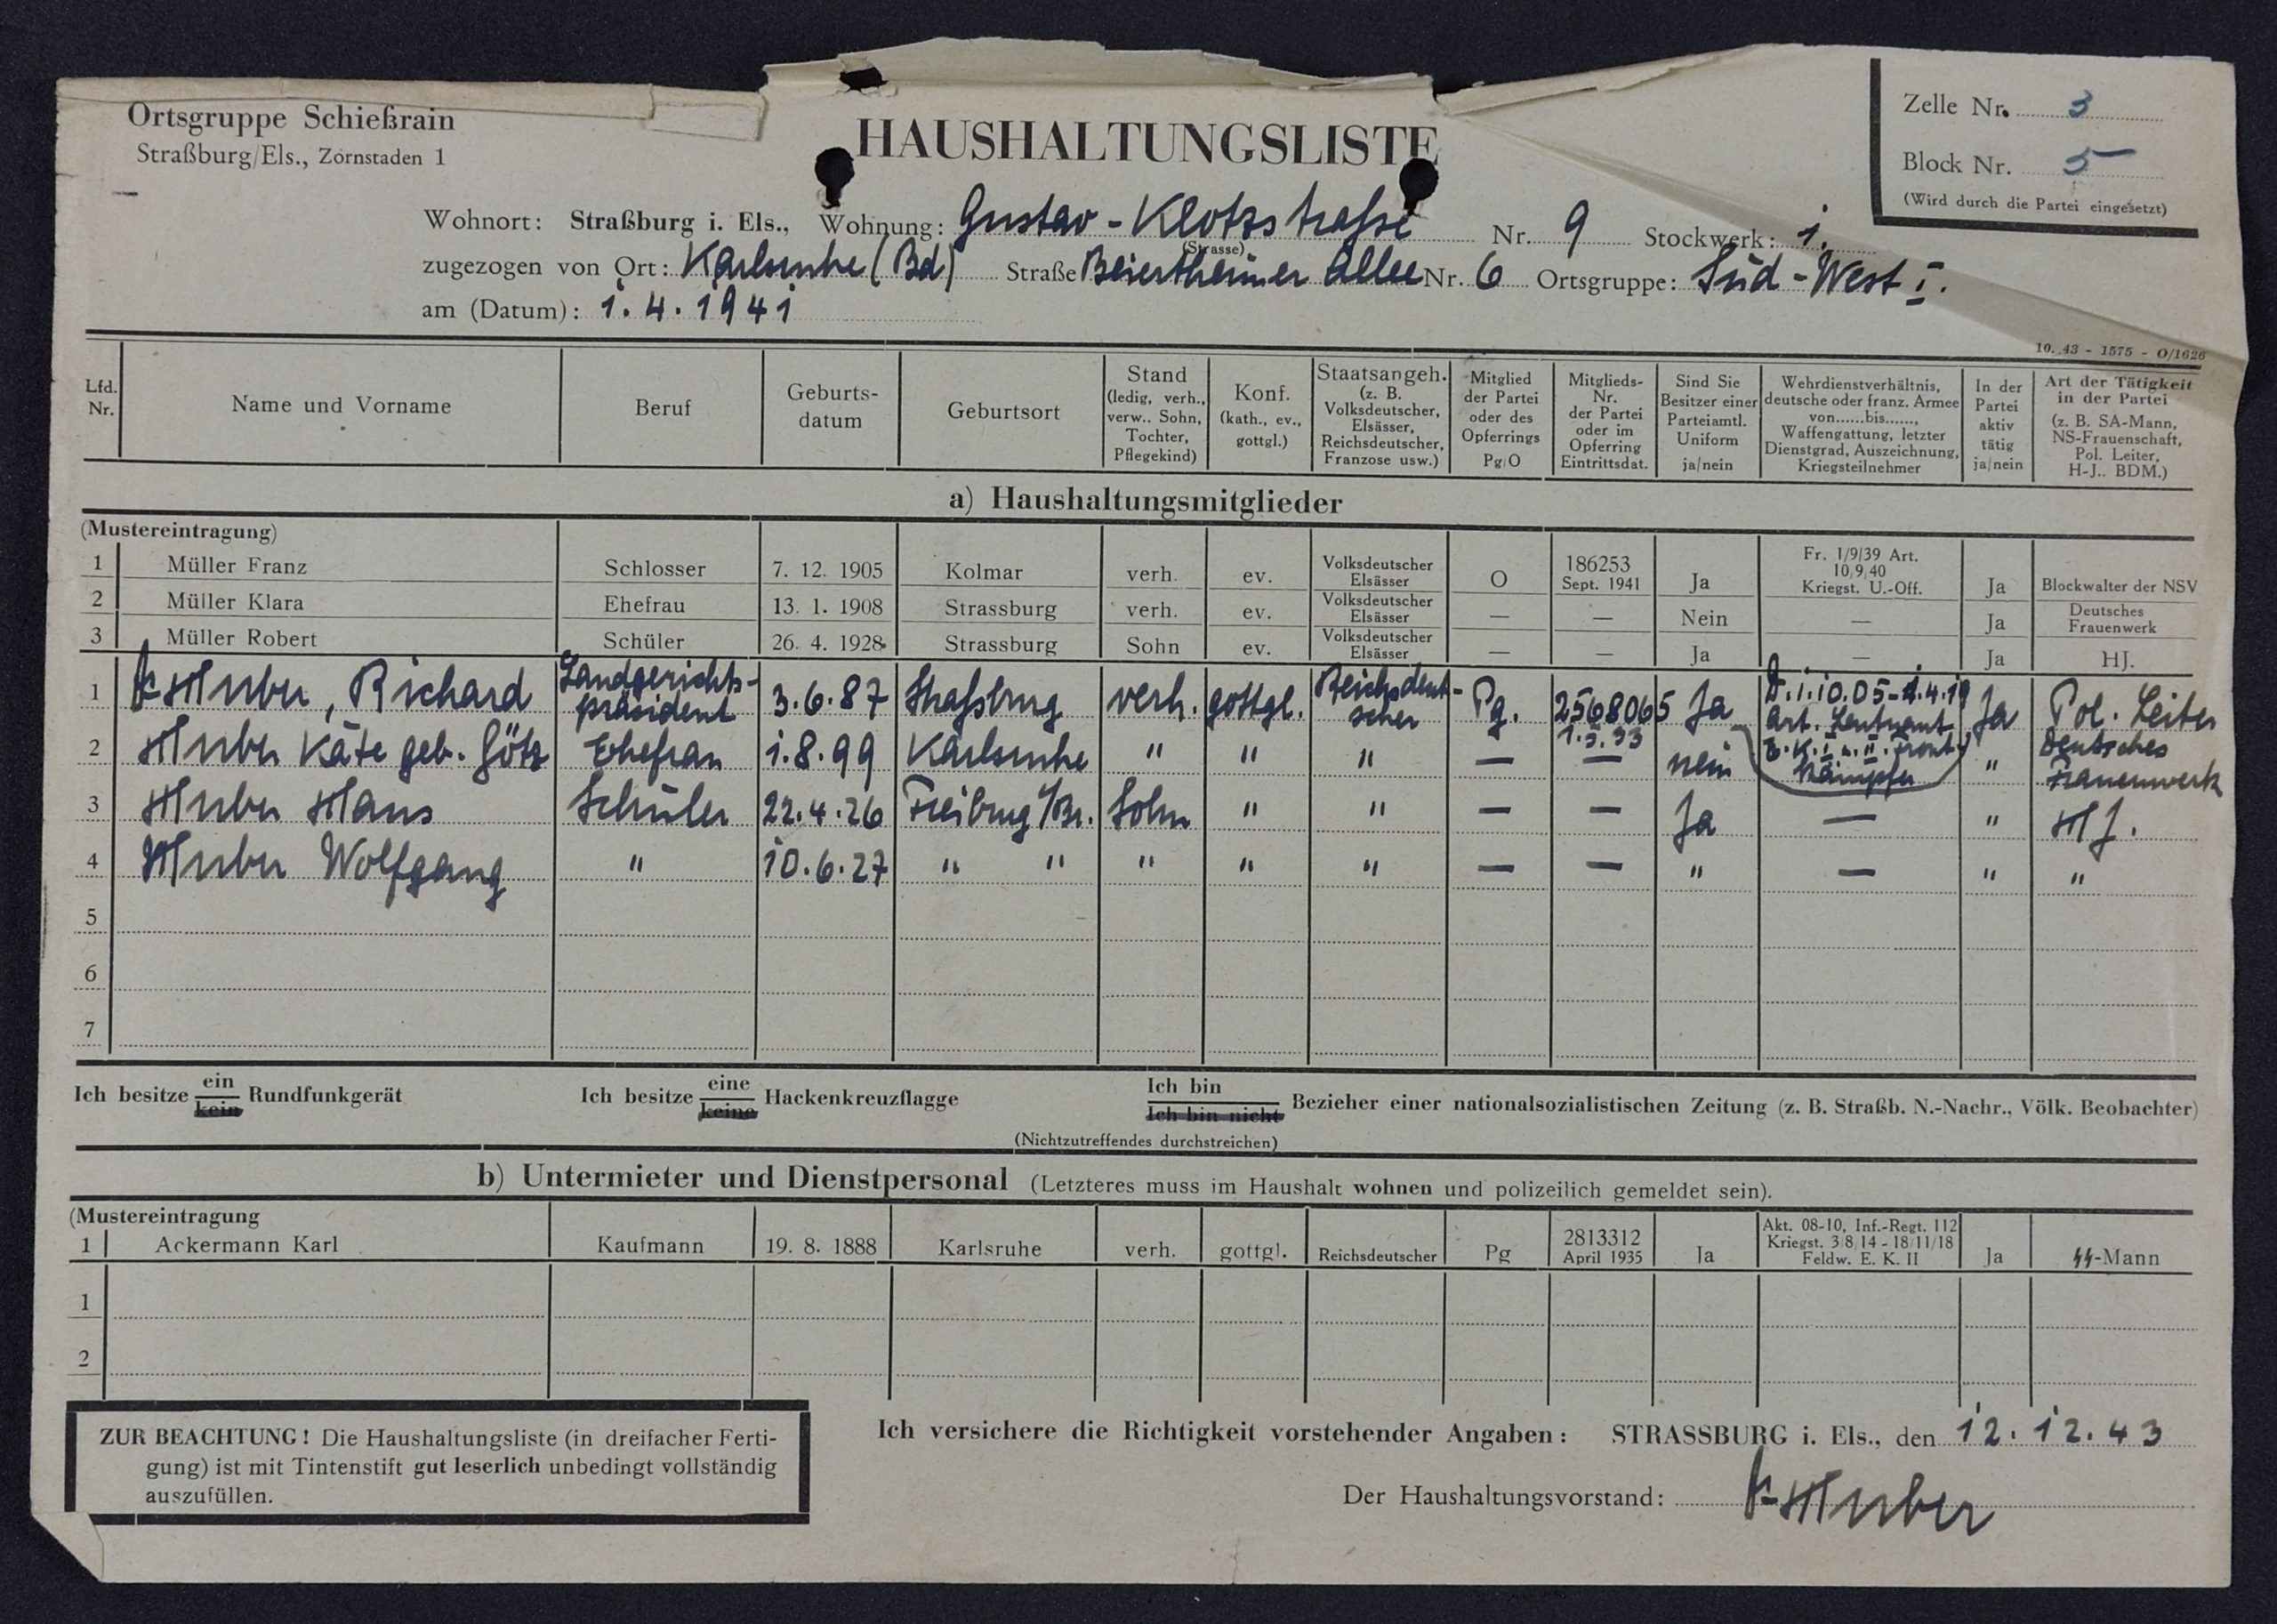 Ortsgruppe Schießrain
Straßburg/Els., Zornstaden 1
HAUSHALTUNGSLISTE
Zelle Nr. 3
Block Nr. 5
(Wird durch die Partei eingesetzt)
Wohnort: Straßburg i. Els., Wohnung: Gustav-Klotzstraße Nr. 9 Stockwerk: 1.
(Strasse)
zugezogen von Ort: Karlsruhe (Bd) Straße Beiertheimer Allee Nr. 6 Ortsgruppe: Süd-West I.
am (Datum): 1.4.1941
10. 43 - 1575 - O/1626
Lfd. Nr. Name und Vorname Beruf Geburts-datum Geburtsort Stand (ledig, verh., verw.. Sohn, Tochter, Pflegekind) Konf. (kath., ev., gottgl.) Staatsangeh. (z. B. Volksdeutscher, Elsässer, Reichsdeutscher, Franzose usw.) Mitglied der Partei oder des Opferrings Pg/O Mitglieds-Nr. der Partei oder im Opferring Eintrittsdat. Sind Sie Besitzer einer Parteiamtl. Uniform ja/nein Wehrdienstverhältnis, deutsche oder franz. Armee von......bis......, Waffengattung, letzter Dienstgrad, Auszeichnung, Kriegsteilnehmer In der Partei aktiv tätig ja/nein Art der Tätigkeit in der Partei (z. B. SA-Mann, NS-Frauenschaft, Pol. Leiter, H-J.. BDM.)
a) Haushaltungsmitglieder
(Mustereintragung)
1 Müller Franz Schlosser 7. 12. 1905 Kolmar verh. ev. Volksdeutscher Elsässer O 186253 Sept. 1941 Ja Fr. 1/9/39 Art. 10/9/40 Kriegst. U.-Off. Ja Blockwalter der NSV
2 Müller Klara Ehefrau 13. 1. 1908 Strassburg verh. ev. Volksdeutscher Elsässer — — Nein — Ja Deutsches Frauenwerk
3 Müller Robert Schüler 26. 4. 1928 Strassburg Sohn ev. Volksdeutscher Elsässer — — Ja — Ja HJ.
1 Huber, Richard Landgerichts-präsident 3.6.87 Straßburg verh. gottgl. Reichsdeut-scher Pg. 2568065 1.5.33 Ja D. 1.10.05-1.4.19 Art. Leutnant E.K. I u. II. Front-kämpfer Ja Pol. Leiter
2 Huber Käte geb. Götz Ehefrau 1.8.99 Karlsruhe " " " — — nein " Deutsches Frauenwerk
3 Huber Hans Schüler 22.4.26 Freiburg i/Br. Sohn " " — — Ja — " HJ.
4 Huber Wolfgang " 10.6.27 " " " " " — — " — " "
5
6
7
Ich besitze ein kein Rundfunkgerät Ich besitze eine keine Hackenkreuzflagge Ich bin Ich bin nicht Bezieher einer nationalsozialistischen Zeitung (z. B. Straßb. N.-Nachr., Völk. Beobachter)
(Nichtzutreffendes durchstreichen)
b) Untermieter und Dienstpersonal (Letzteres muss im Haushalt wohnen und polizeilich gemeldet sein).
(Mustereintragung
1 Ackermann Karl Kaufmann 19. 8. 1888 Karlsruhe verh. gottgl. Reichsdeutscher Pg 2813312 April 1935 Ja Akt. 08-10, Inf.-Regt. 112 Kriegst. 3/8/14 - 18/11/18 Feldw. E. K. II Ja SS-Mann
1
2
ZUR BEACHTUNG! Die Haushaltungsliste (in dreifacher Ferti-
gung) ist mit Tintenstift gut leserlich unbedingt vollständig
auszufüllen.
Ich versichere die Richtigkeit vorstehender Angaben: STRASSBURG i. Els., den 12.12.43
Der Haushaltungsvorstand: Huber